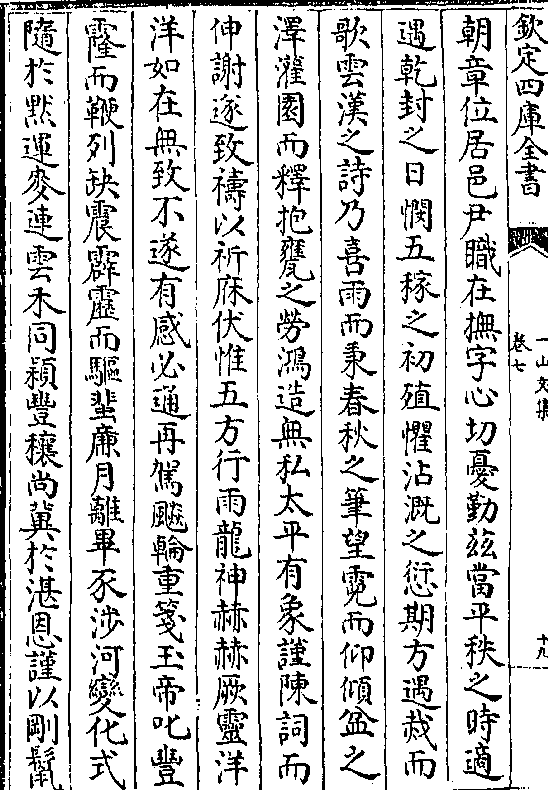 欽定四庫全書
一山文集
卷七
十九
朝章位居邑尹職在撫字心切憂勤兹當平秩之時適
遇乾封之日憫五稼之初殖懼沾溉之愆期方遇烖而
歌雲漢之詩乃喜雨而秉春秋之筆望霓而仰傾盆之
澤灌園而釋抱甕之勞鴻造無私太平有象謹陳詞而
伸謝遂致禱以祈庥伏惟五方行雨龍神赫赫厥靈洋
洋如在無致不遂有感必通再駕飈輪重箋玉帝叱豐
霳而鞭列缺震霹靂而驅蜚廉月離畢豕涉河變化式
隨於默運麥連雲禾同穎豐穰尚冀於湛恩謹以剛鬣